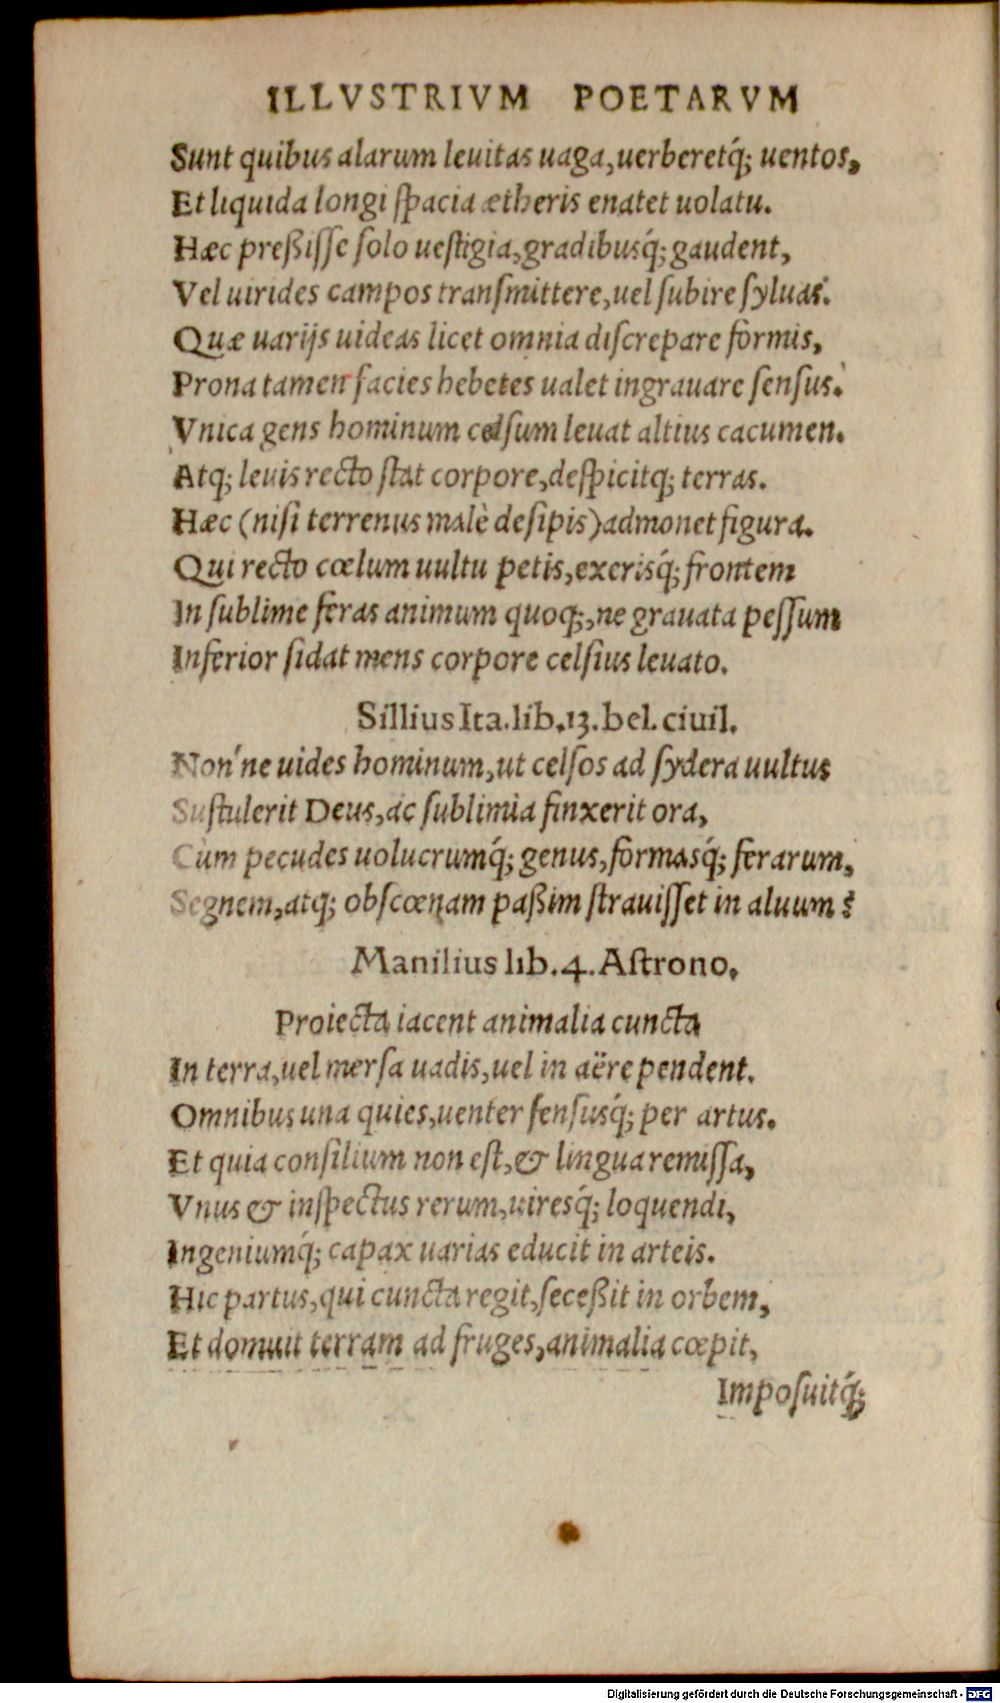 ILLVSTRIVM POETARVM
Sunt quibus alarum leuitas uaga, uerberetq́; uentos,
Et liquida longi ſpacia ætheris enatet uolatu.
Hæc preßiſſe ſolo ueſtigia, gradibusq́; gaudent,
Vel uirides campos tranſmittere, uel ſubire ſyluas.
Quæ uarijs uideas licet omnia diſcrepare formis,
Prona tamen facies hebetes ualet ingrauare ſenſus.
Vnica gens hominum celſum leuat altius cacumen.
Atq; leuis recto ſtat corpore, deſpicitq; terras.
Hæc (niſi terrenus malè deſipis) admonet figura.
Qui recto cœlum uultu petis, exerisq́; frontem
In ſublime feras animum quoq;, ne grauata peſſum
Inferior ſidat mens corpore celſius leuato.
Sillius Ita. lib. 13. bel. ciuil.
Non'ne uides hominum, ut celſos ad ſydera uultus
Suſtulerit Deus, ac ſublimia finxerit ora,
Cùm pecudes uolucrumq́; genus, formasq́; ferarum,
Segnem, atq; obſcœnam paßim ſtrauiſſet in aluum?
Manilius lib. 4. Aſtrono.
Proiecta iacent animalia cuncta
In terra, uel merſa uadis, uel in aëre pendent.
Omnibus una quies, uenter ſenſusq́; per artus.
Et quia conſilium non eſt, & lingua remiſſa,
Vnus & inſpectus rerum, uiresq́; loquendi,
Ingeniumq́; capax uarias educit in arteis.
Hic partus, qui cuncta regit, ſeceßit in orbem,
Et domuit terram ad fruges, animalia cœpit,
Impoſuitq́;
Digitalisierung gefördert durch die Deutsche Forschungsgemeinschaft - DFG